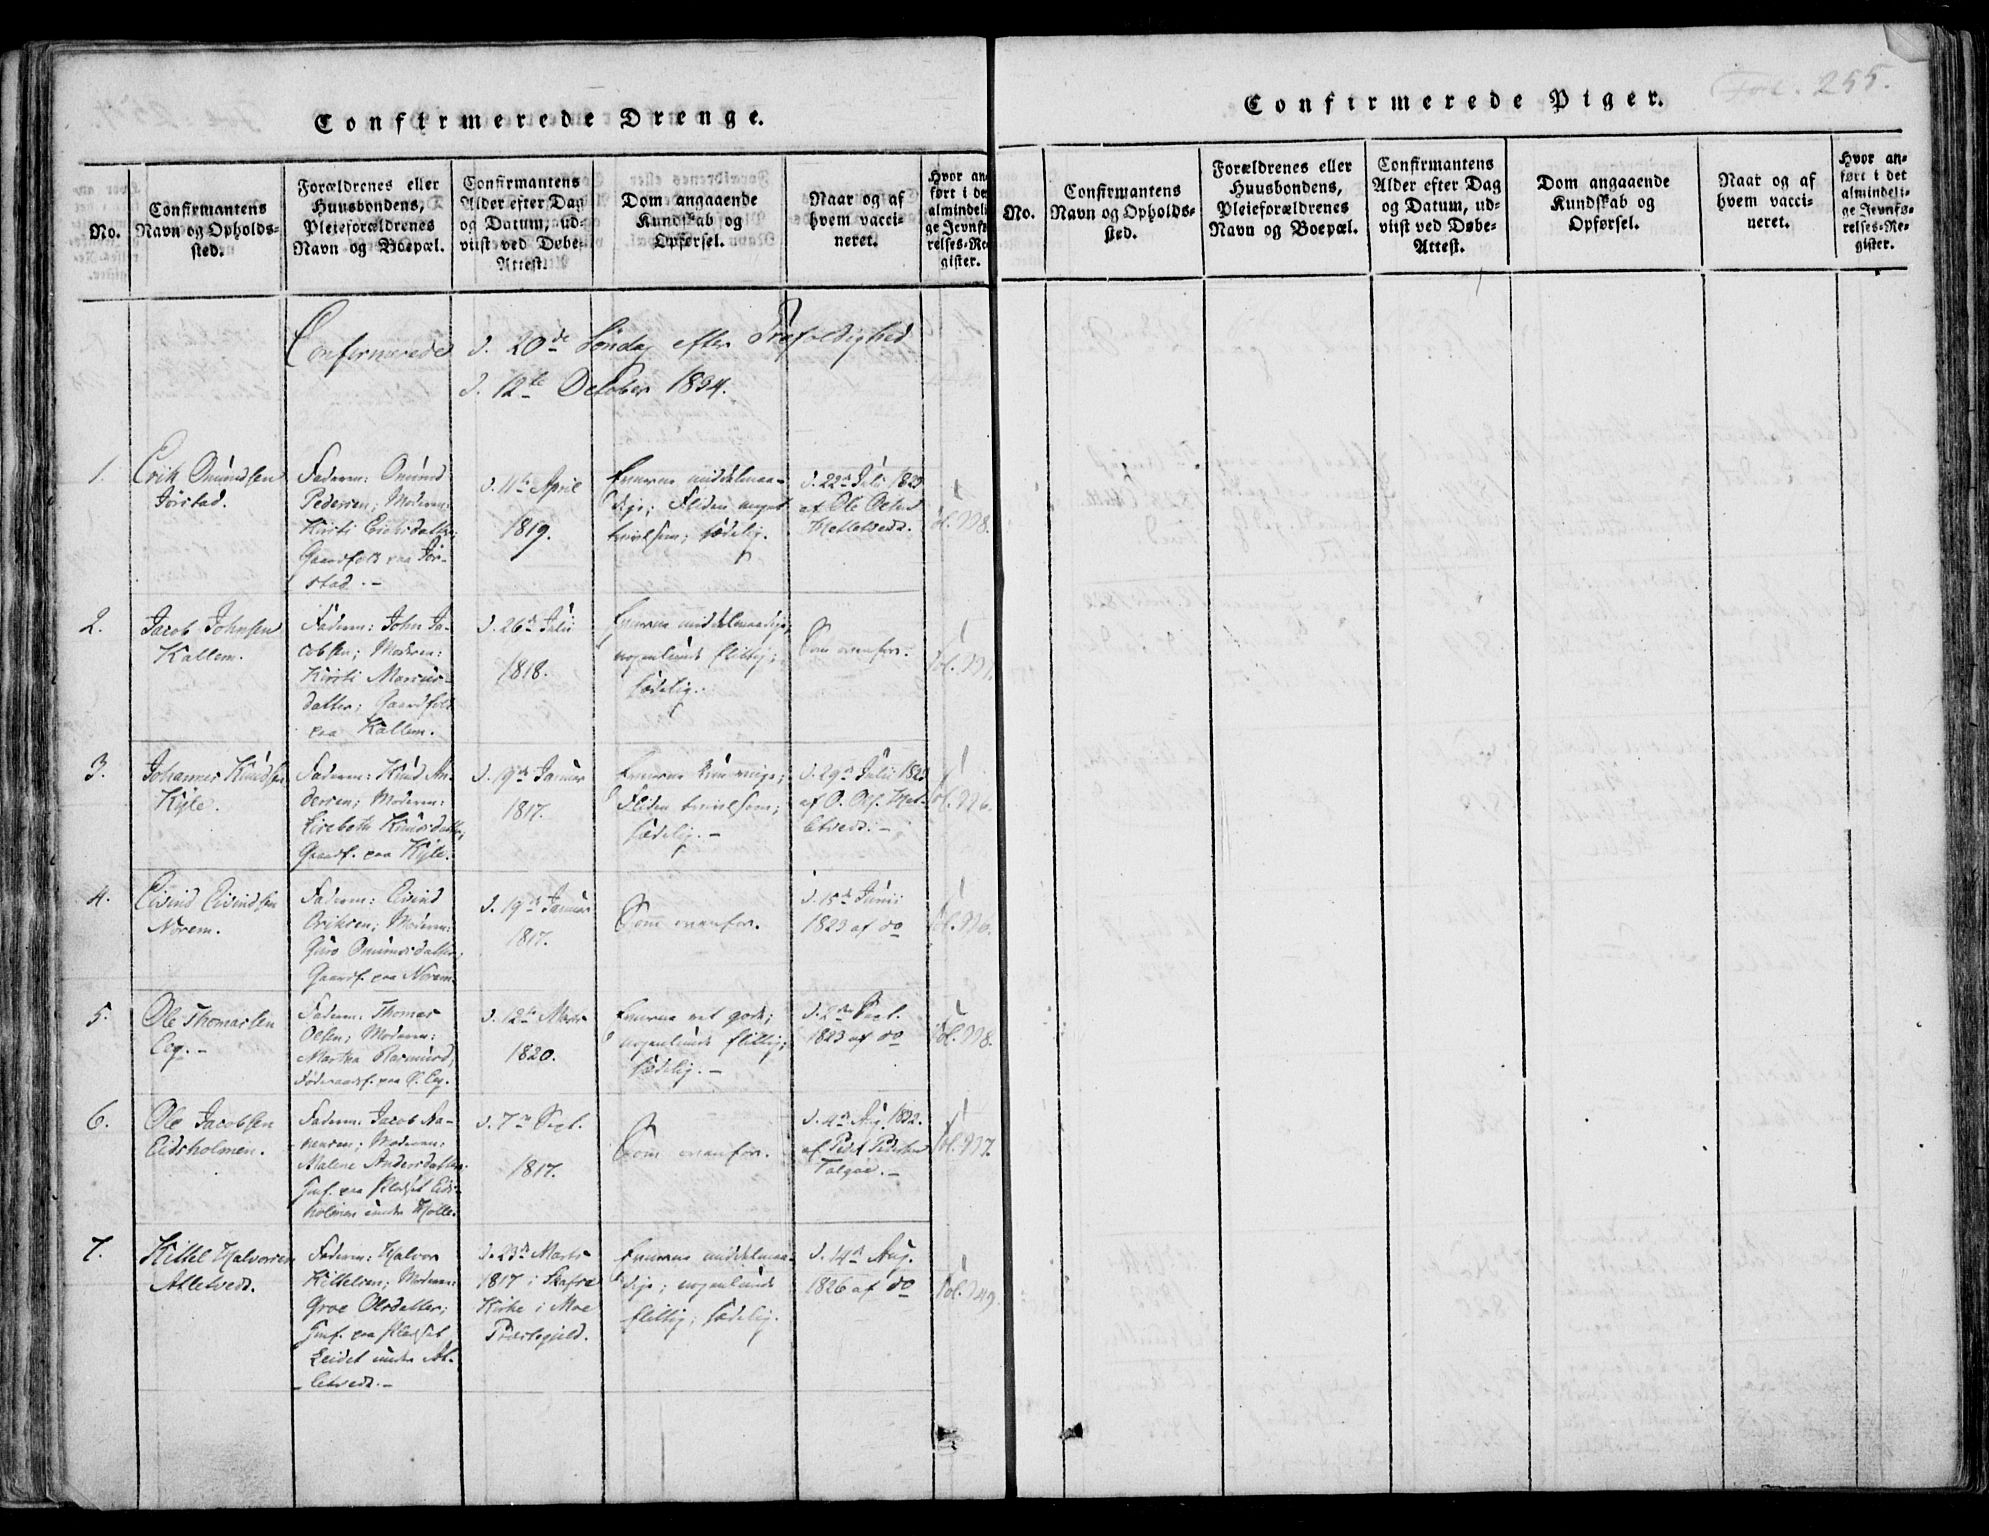 Confirmerede Drenge.
No.
Confirmantens
Navn og Opholds-
sted.
Forældrenes eller
Huusbondens,
Pleieforældrenes
Navn og Boepæl.
Confirmantens
Alder efter Dag
og Datum, ud-
viist ved Døbe-
Attest.
Dom angaaende
Kundskab og
Opførsel.
Naar og af
hvem vacci-
neret.
Hvor an-
ført i de
almindeli
ge Jevnfø
relses-Re
gister.
Confirmerede d. 20de Søndag efter Trefoldighed
d. 12te October 1834.
1.
Erik Omundsen
Jørstad.
Faderen: Omund
Pedersen; Moderen:
Kirsti Eriksdatter;
Gaardfolk paa Jør-
stad. -
d. 11te April
1819.
Evnerne middelmaa-
dige; Fliden meget
tvivlsom; sædelig.
d. 22de Juli 1823
af Ole Olsen
Meltetvedt.
Fol. 98.
2.
Jacob Johnsen
Kallem.
Faderen: John Ja-
cobsen; Moderen:
Kirsti Marcus-
datter; Gaardfolk
paa Kallem.
d. 26de Julii
1818.
Evnerne middelmaadige;
nogenlunde flittig;
sædelig.
Som ovenfor.
3.
Johannes Knudsen
Kyle.
Faderen: Knud An-
dersen; Moderen:
Lisebeth Knudsdatter;
Gaardf. paa Kyle.
d. 19de Januar
1817.
Evnerne
Fliden tvivlsom;
sædelig. -
d. 29de Julii 1823
af O. Ols.
4.
Eivind Eivindsen
Norem.
Faderen: Eivind
Eriksen; Moderen:
Guro Omundsdatter;
Gaardf. paa Norem.
d. 19de Januar
1817.
Som ovenfor.
d. 15de Junii
1823 af do
5.
Ole Thomassen
Eeg. -
Faderen: Thomas
Olsen; Moderen:
Martha Rasmusd;
Føderaadsf. paa Eeg.
d. 12te Marts
1820.
Evnerne ret gode;
nogenlunde flittig;
sædelig. -
d. 2den Sept.
1823 af do
6.
Ole Jacobsen
Eidsholmen.
Faderen: Jacob
Moderen:
Malene Andersdatter
Huusf. paa Pladset Eids-
holmen under
d. 7de Sept.
1817.
Som ovenfor.
d. 4de Aug. 1832.
af Peder Pedersen
Talgøe. -
7.
Kittel Halvorsen
Aletvedt.
Faderen: Halvor
Kittelsen; Moderen:
Groe Olsdatter;
Huusf. paa Pladset
Leidet under Al-
letvedt. -
d. 23de Marts
1817 i Skafsø
Kirke i Moe
Præstegield.
Evnerne middelmaa-
dige; nogenlunde
flittig; sædelig.
d. 14de Aug.
1826 af do
Confirmerede Piger.
Fol. 255.
No.
Confirmantens
Navn og Opholds-
sted.
Forældrenes eller
Huusbondens,
Pleieforældrenes
Navn og Boepæl.
Confirmantens
Alder efter Dag
og Datum, ud-
viist ved Døbe-
Attest.
Dom angaaende
Kundskab og
Opførsel.
Naar og af
hvem vacci-
neret.
Hvor an-
ført i det
almindeli-
ge Jevnfø-
relses-Re-
gister.